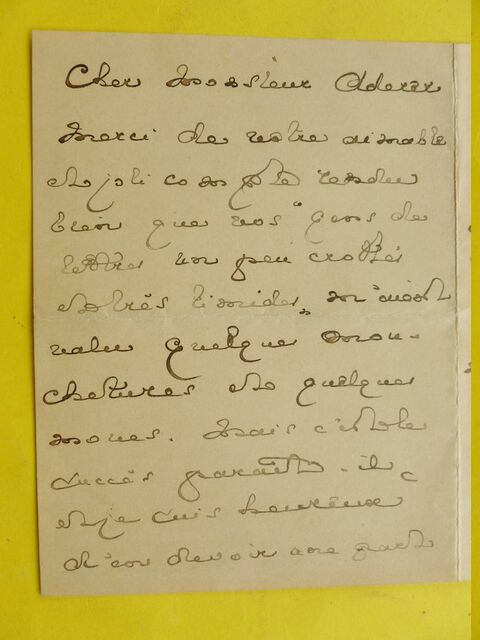 Cher Monsieur Aderer
Merci de votre aimable
et joli compte rendu
bien que vos "gens de
lettres un peu crottés
et très timides" m'aient
valu quelques mou-
chetures et quelques
moues. Mais c'est le
succès paraît-il
et je suis heureux
d'en devoir une part